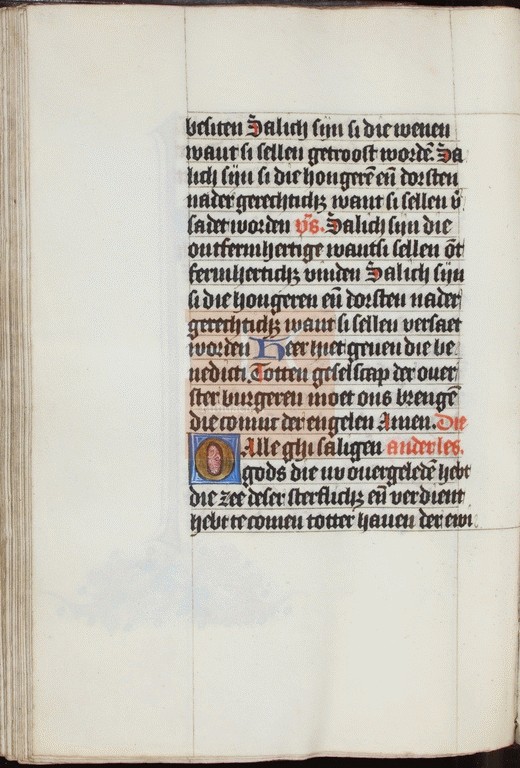 besiten Salich sijn si die wenen
want si sellen getroost wordē. Sa
lich sijn si die hongerē eñ dorsten
nader gerechtichz want si sellen v̄
sadet worden v̓s. Salich sijn die
ontfermhertige wantsi sellen ōt
fermhertichz vinden Salich sijn
si die hongeren eñ dorsten nader
gerechtichz want si sellen versaet
worden Heer hiet geuen die be
nedicti. Totten geselscap der ouer
ster burgeren moet ons brengē
die coninc der engelen Amen. Die
O Alle ghi saligen ander les.
gods die nv ouergeledē hebt
die zee deser sterflichz eñ verdient
hebt te comen totter hauen der ewi